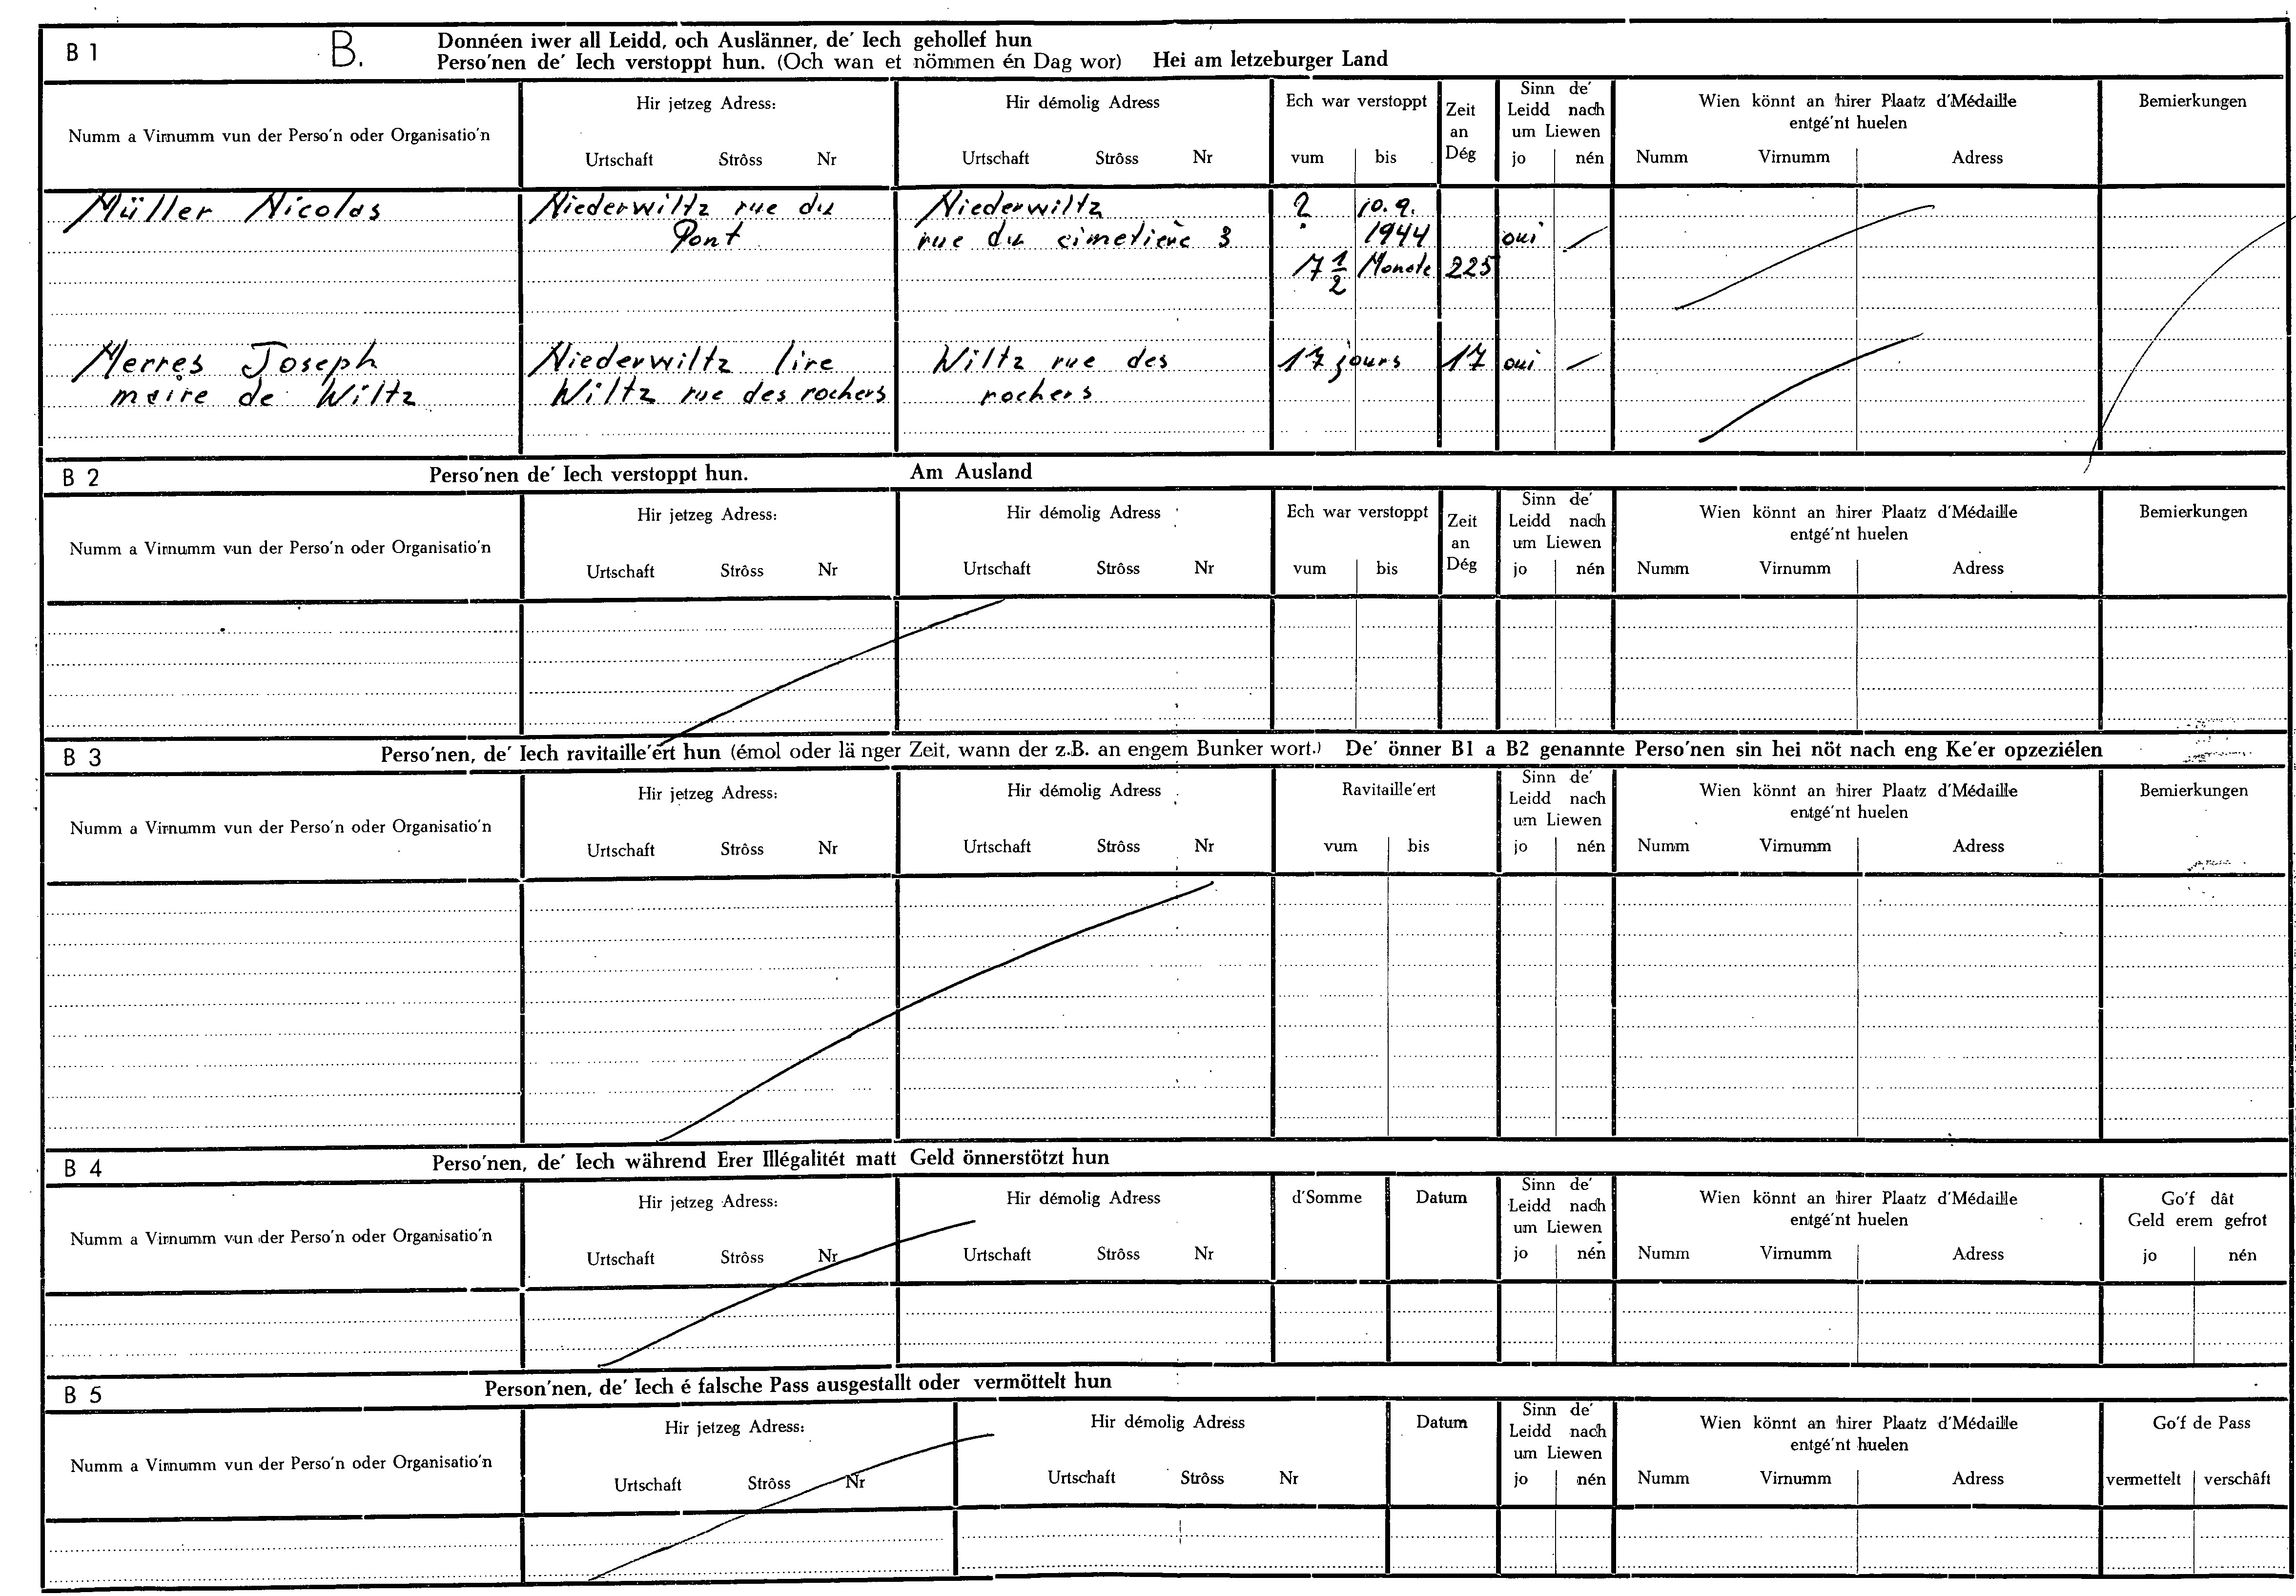 B 1 B. Donnéen iwer all Leidd, och Auslänner, de' Iech gehollef hun
Perso'nen de' Iech verstoppt hun. (Och wan et nömmen én Dag wor) Hei am letzeburger Land
Numm a Virnumm vun der Perso'n oder Organisatio'n
Hir jetzeg Adress:
Urtschaft Strôss Nr
Hir démolig Adress
Urtschaft Strôss Nr
Ech war verstoppt
vum bis
Zeit
an
Dég
Sinn de'
Leidd nach
um Liewen
jo nén
Wien könnt an hirer Plaatz d'Médaille
entgé'nt huelen
Numm Virnumm Adress
Bemierkungen
Müller Nicolas Niederwiltz rue du Niederwiltz ? 10.9.
Pont rue du cimetière 3 1944 oui
7 1/2 Monate 225
Merres Joseph Niederwiltz lire Wiltz rue des 17 jours 17 oui
maire de Wiltz Wiltz rue des rochers rochers
B 2 Perso'nen de' Iech verstoppt hun. Am Ausland
Numm a Virnumm vun der Perso'n oder Organisatio'n
Hir jetzeg Adress:
Urtschaft Strôss Nr
Hir démolig Adress
Urtschaft Strôss Nr
Ech war verstoppt
vum bis
Zeit
an
Dég
Sinn de'
Leidd nach
um Liewen
jo nén
Wien könnt an hirer Plaatz d'Médaille
entgé'nt huelen
Numm Virnumm Adress
Bemierkungen
B 3 Perso'nen, de' Iech ravitaille'ert hun (émol oder länger Zeit, wann der z.B. an engem Bunker wort.) De' önner B1 a B2 genannte Perso'nen sin hei nöt nach eng Ke'er opzeziélen
Numm a Virnumm vun der Perso'n oder Organisatio'n
Hir jetzeg Adress:
Urtschaft Strôss Nr
Hir démolig Adress
Urtschaft Strôss Nr
Ravitaille'ert
vum bis
Sinn de'
Leidd nach
um Liewen
jo nén
Wien könnt an hirer Plaatz d'Médaille
entgé'nt huelen
Numm Virnumm Adress
Bemierkungen
B 4 Perso'nen, de' Iech während Erer Illégalitét matt Geld önnerstötzt hun
Numm a Virnumm vun der Perso'n oder Organisatio'n
Hir jetzeg Adress:
Urtschaft Strôss Nr
Hir démolig Adress
Urtschaft Strôss Nr
d'Somme
Datum
Sinn de'
Leidd nach
um Liewen
jo nén
Wien könnt an hirer Plaatz d'Médaille
entgé'nt huelen
Numm Virnumm Adress
Go'f dât
Geld erem gefrot
jo nén
B 5 Person'nen, de' Iech é falsche Pass ausgestallt oder vermöttelt hun
Numm a Virnumm vun der Perso'n oder Organisatio'n
Hir jetzeg Adress:
Urtschaft Strôss Nr
Hir démolig Adress
Urtschaft Strôss Nr
Datum
Sinn de'
Leidd nach
um Liewen
jo nén
Wien könnt an hirer Plaatz d'Médaille
entgé'nt huelen
Numm Virnumm Adress
Go'f de Pass
vermettelt verschâft